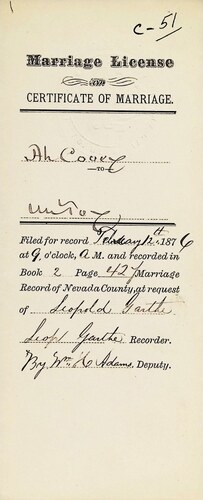 C-51
Marriage License
AND
CERTIFICATE OF MARRIAGE.
Ah
TO
Filed for record February 12th 1876
at 9 o'clock, A M. and recorded in
Book 2 Page 427 Marriage
Record of Nevada County, at request
of Leopold Garthe
Leopl Garthe Recorder.
By Wm H Adams, Deputy.